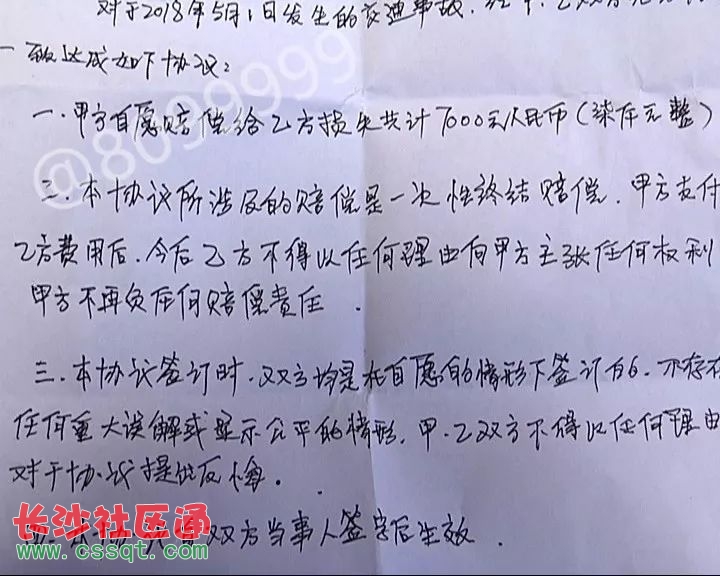 对于2018年5月1日发生的交通事故.经甲.乙双方
一致达成如下协议：
一.甲方自愿赔偿给乙方损失共计7000元人民币（柒仟元整）
二.本协议所涉及的赔偿是一次性终结赔偿.甲方支付
乙方费用后.今后乙方不得以任何理由向甲方主张任何权利
甲方不再负任何赔偿责任.
三.本协议签订时.双方均是在自愿的情形下签订的.不存在
任何重大误解或显示公平的情形.甲.乙双方不得以任何理由
对于协议提出反悔.
四.本协议自双方当事人签字后生效.
@8099999
长沙社区通
www.cssqt.com